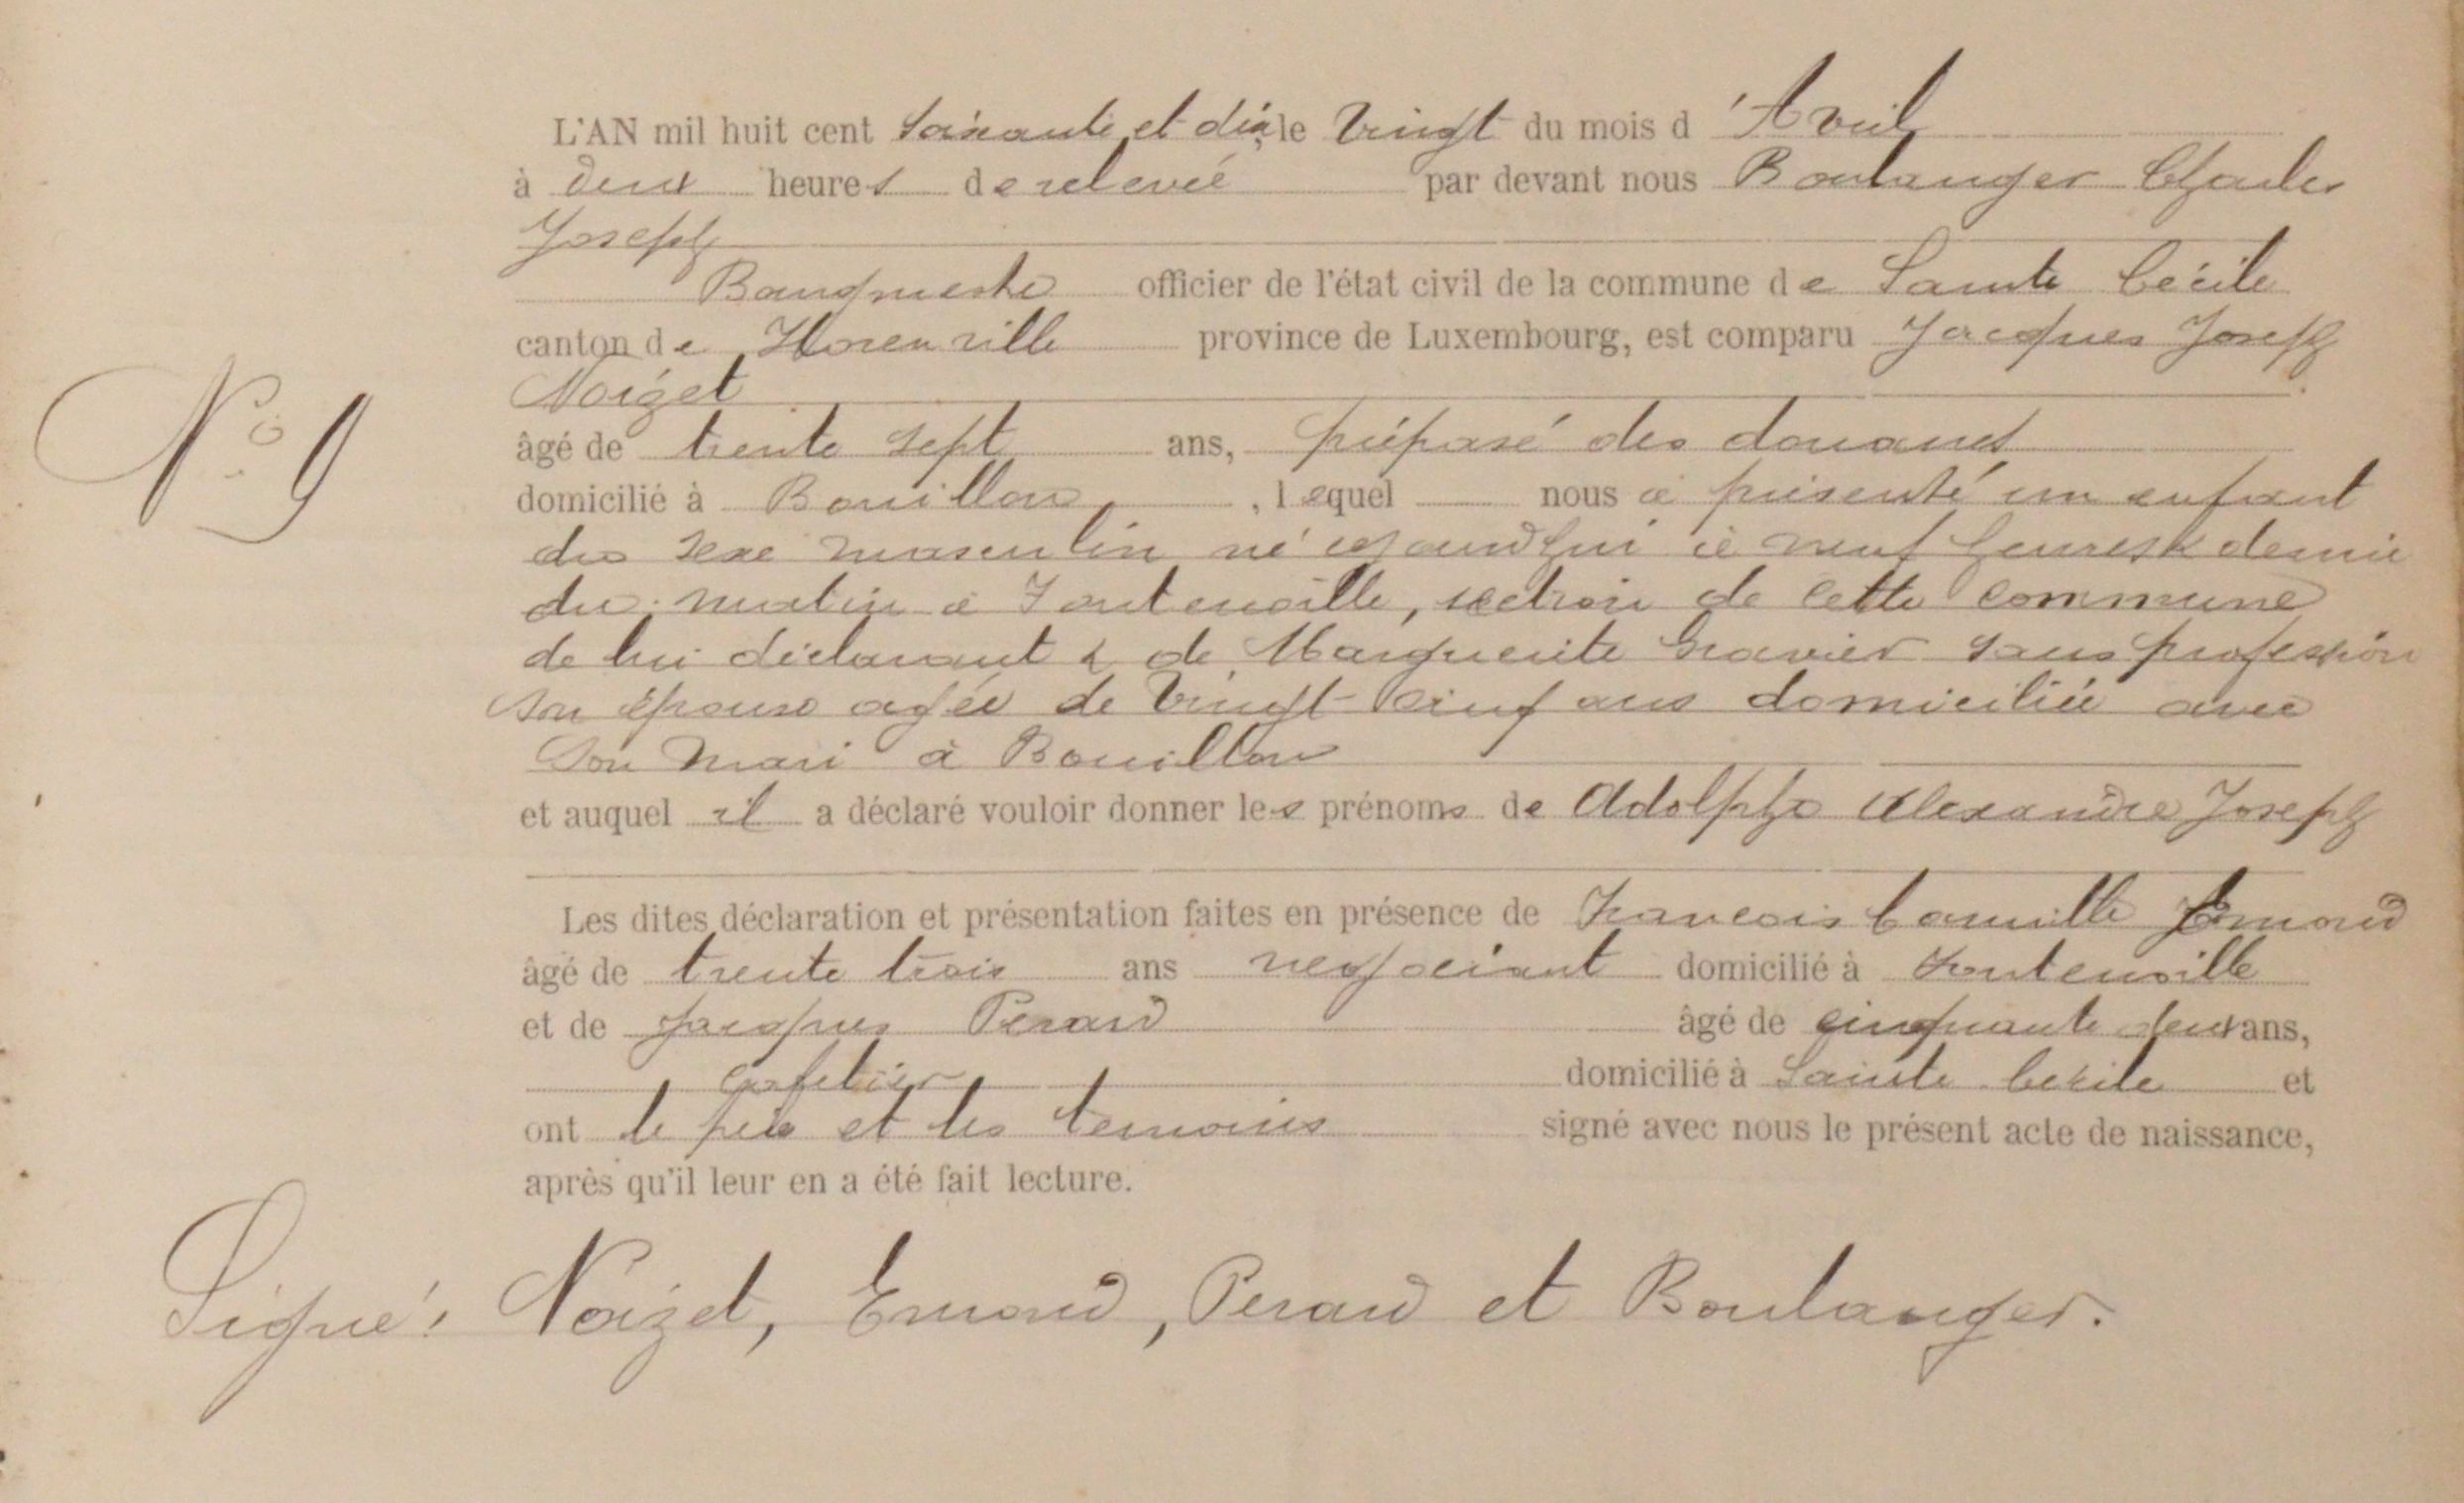 L'AN mil huit cent soixante et dix, le vingt du mois d'Avril
à deux heures de relevée par devant nous Boulanger Charles
Joseph
Bourgmestre officier de l'état civil de la commune de Sainte Cécile
canton de Florenville province de Luxembourg, est comparu Jacques Joseph
Noizet
N° 9
âgé de trente sept ans, préposé des douanes
domicilié à Bouillon, lequel nous a présenté un enfant
du sexe masculin né aujourd'hui à neuf heures & demie
du matin à Fontenoille, section de cette commune
de lui déclarant & de Marguerite Gravier sans profession
son épouse agée de vingt-cinq ans domiciliée avec
son mari à Bouillon
et auquel il a déclaré vouloir donner les prénoms de Adolphe Alexandre Joseph
Les dites déclaration et présentation faites en présence de Francois Camille Emond
âgé de trente trois ans negociant domicilié à Fontenoille
et de Jacques Perard âgé de cinquante deux ans,
cafetier domicilié à Sainte Cecile et
ont le père et les temoins signé avec nous le présent acte de naissance,
après qu'il leur en a été fait lecture.
Signé: Noizet, Emond, Perard et Boulanger.